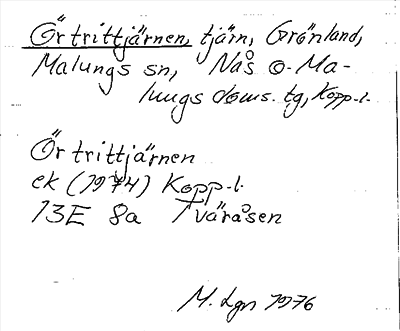 Örtrittjärnen, tjärn, Grönland,
Malungs sn, Nås o. Ma-
lungs doms. tg, Kopp.l.
Örtrittjärnen
ek (1974) Kopp.l.
13E 8a Tväråsen
M. Lgn 1976